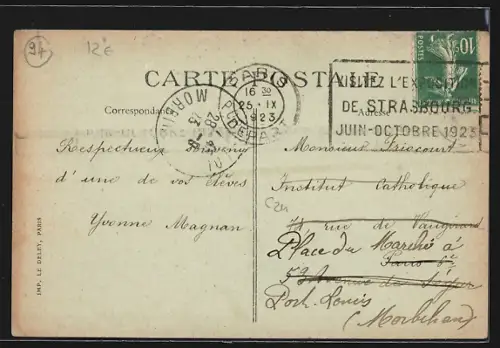 94
12 €
CARTE POSTALE
Correspondance
Adresse
POSTES
10
PARIS
16 30
25 - IX
1923
R. DUPERT
VISITEZ L'EXPOSITION
DE STRASBOURG
JUIN-OCTOBRE 1923
Respectueux souvenir
d'une de vos élèves
Yvonne Magnan
Monsieur Friocourt
Institut Catholique
74 rue de Vaugirard
Paris 6e
Place du Marché à
53 Avenue de Ségur
Port-Louis
(Morbihan)
IMP. LE DELEY, PARIS